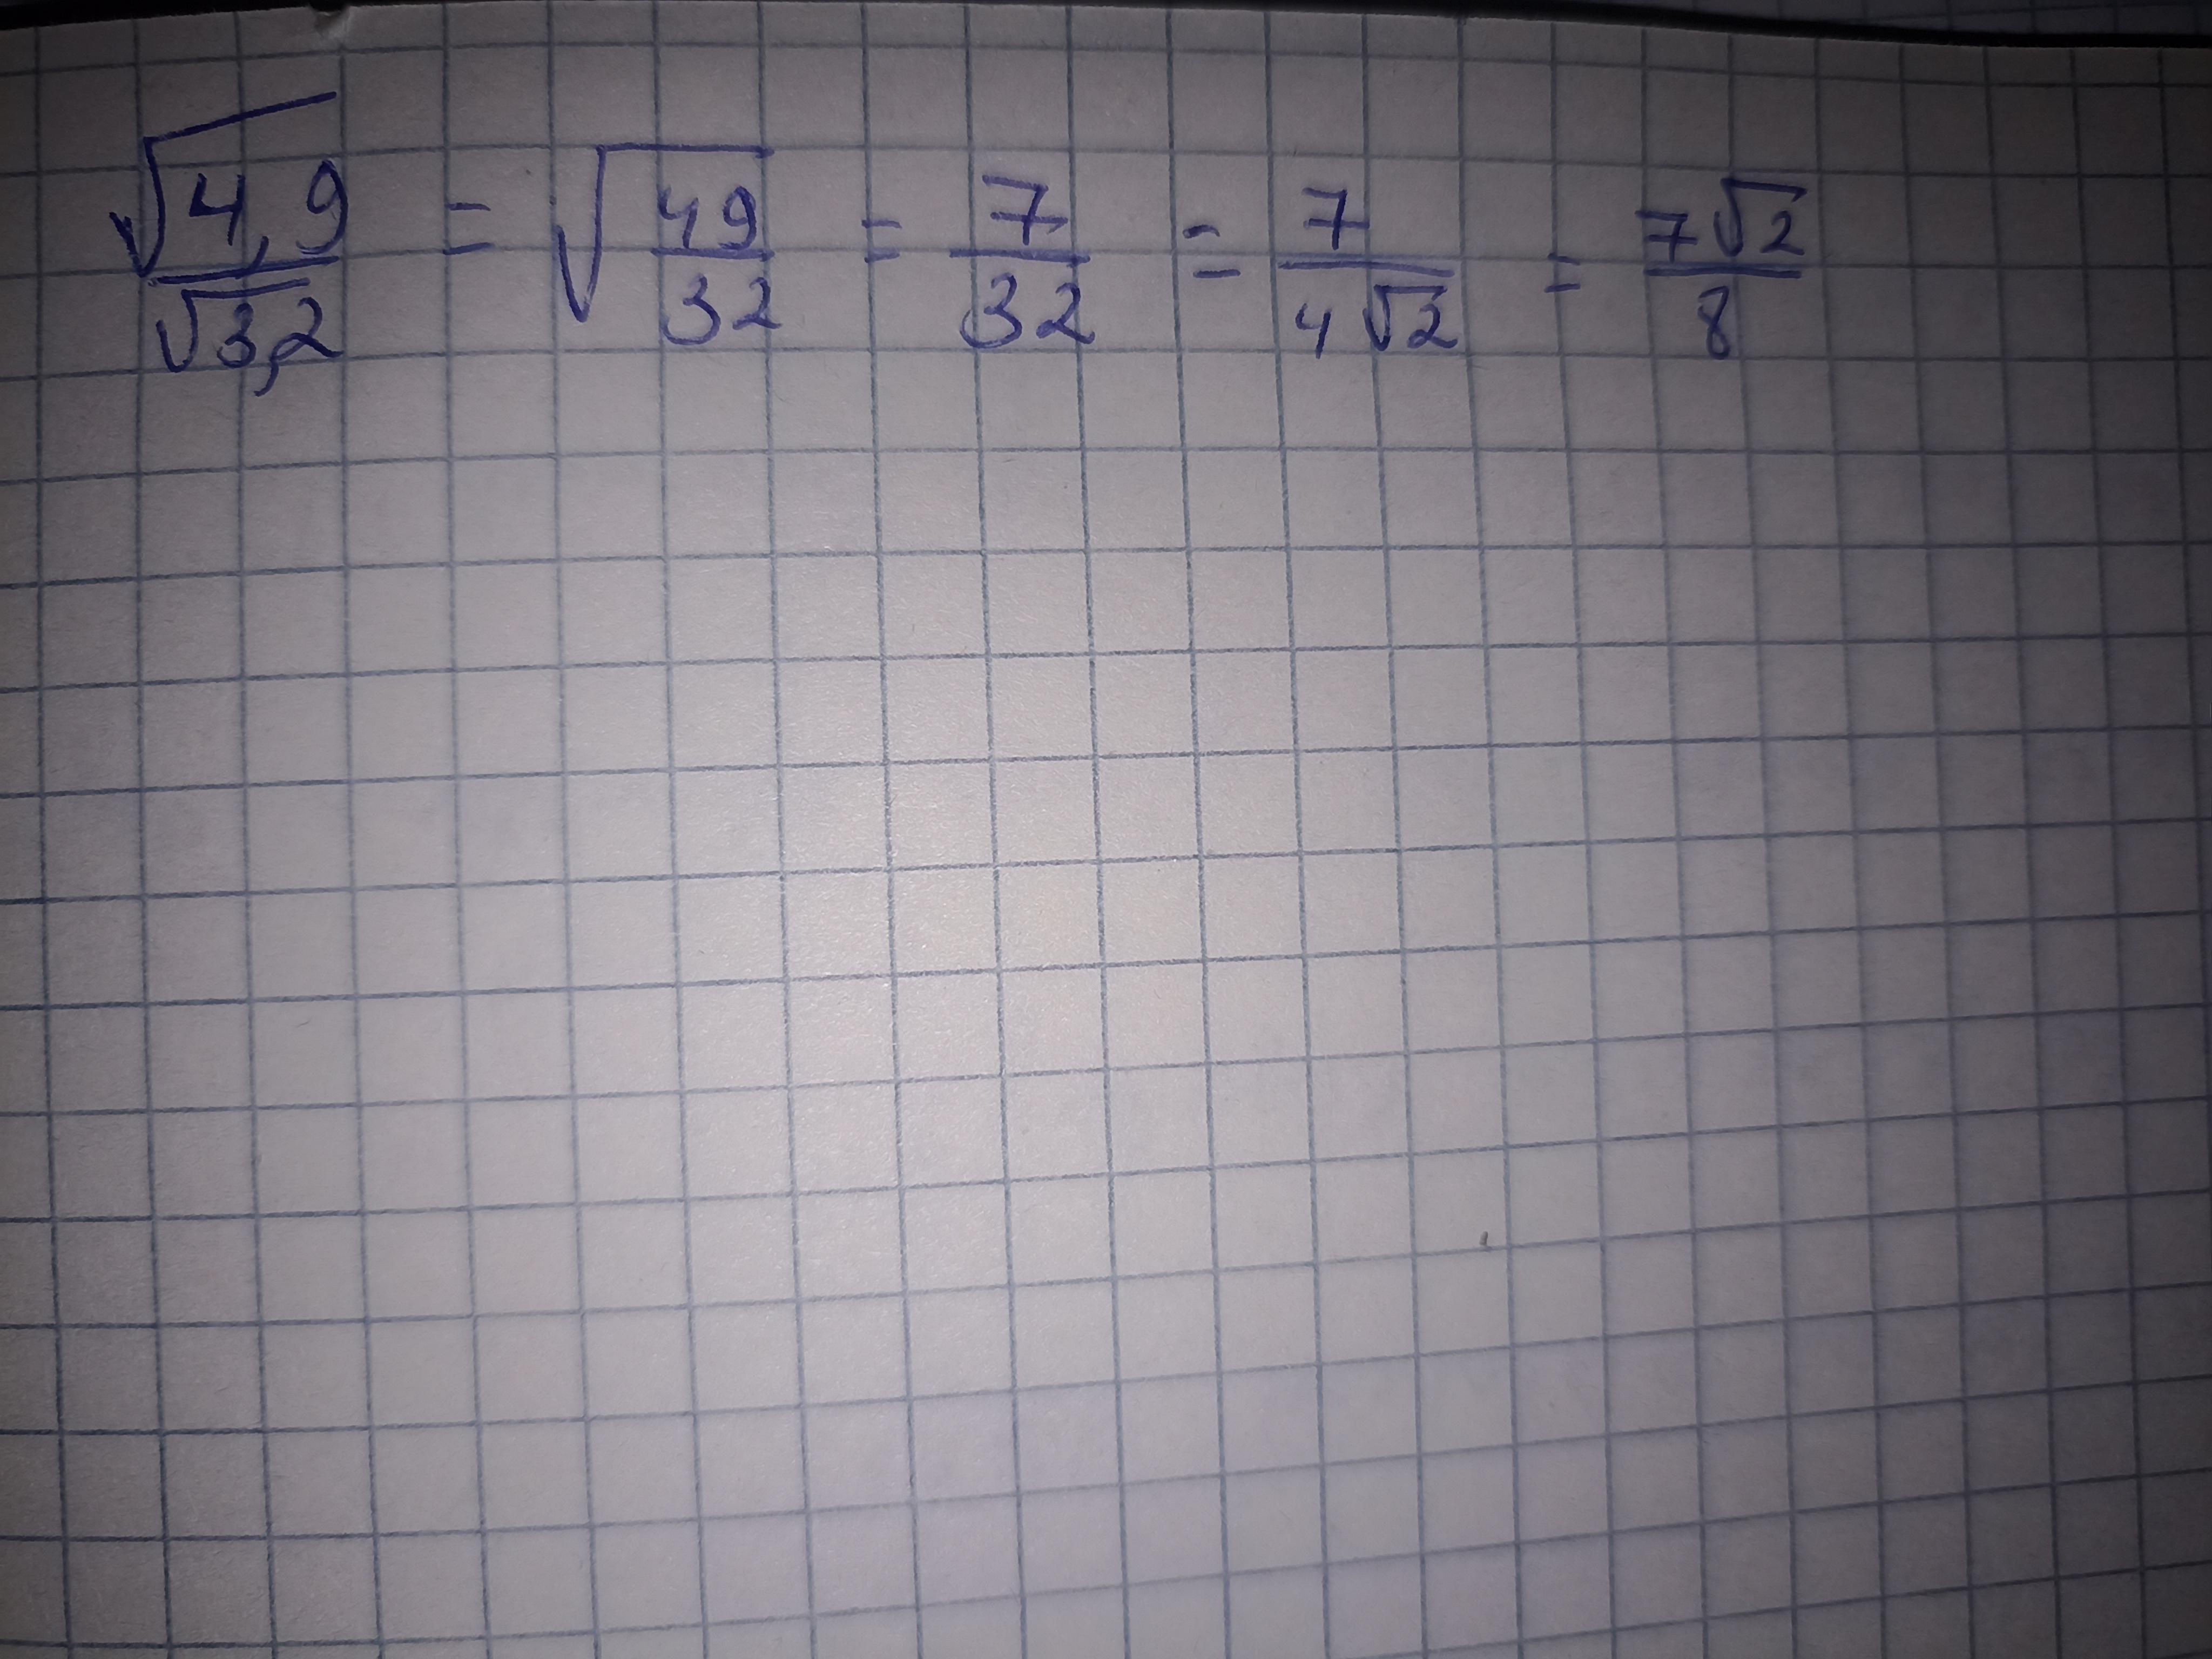 √4,9/√3,2 = √(49/32) = 7/32 = 7/4√2 = 7√2/8